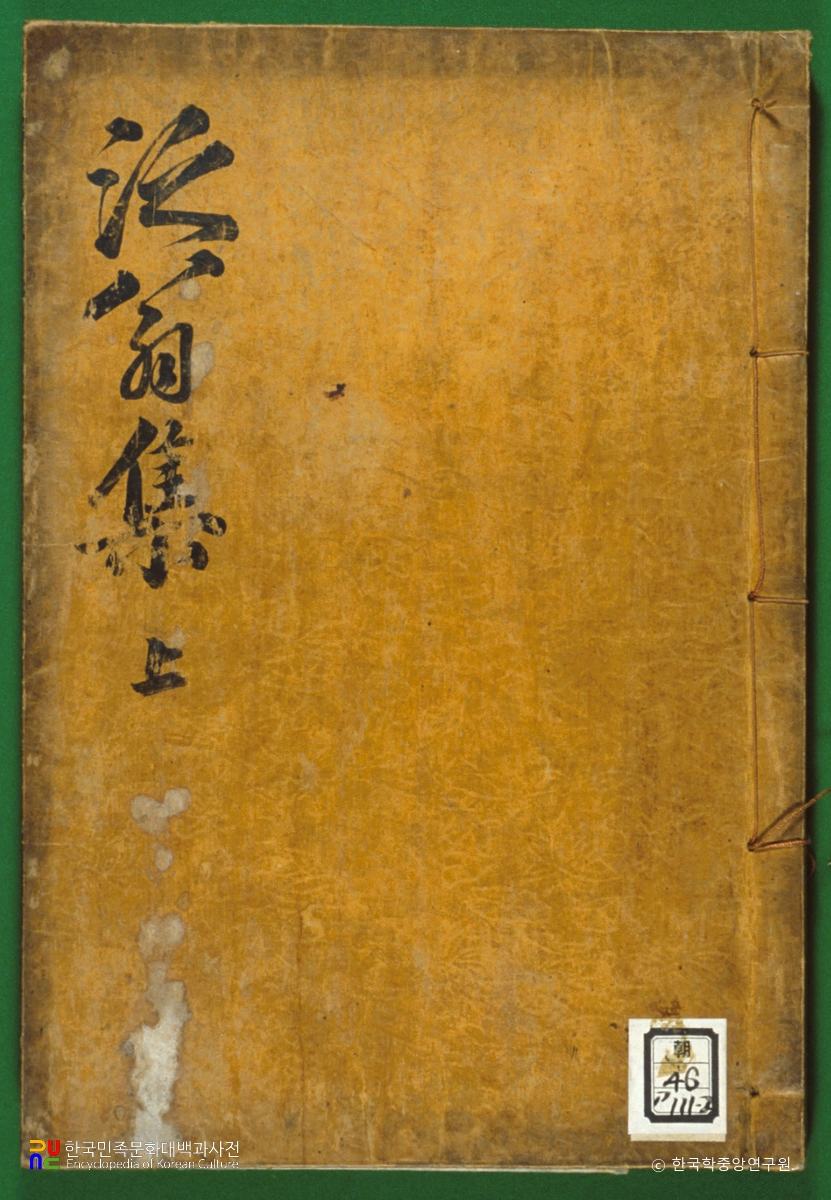 泛翁集 上
朝
46
ア111-2
한국민족문화대백과사전
Encyclopedia of Korean Culture
© 한국학중앙연구원